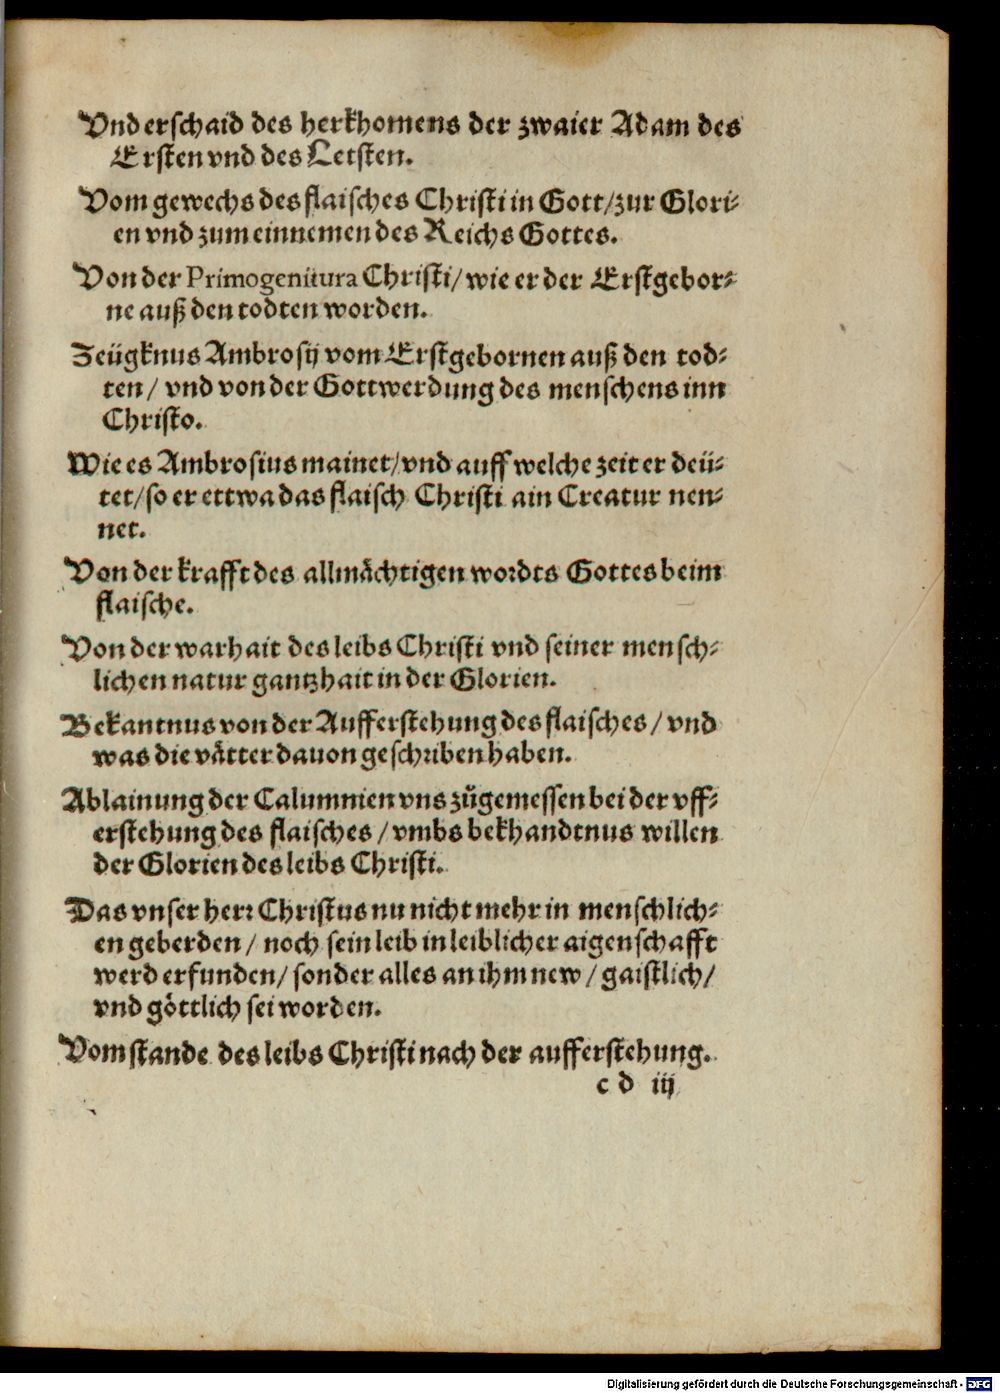 Vnderschaid des herkhomens der zwaier Adam des
Ersten vnd des Letsten.
Vom gewechs des flaisches Christi in Gott/zur Glori⸗
en vnd zum einnemen des Reichs Gottes.
Von der Primogenitura Christi/ wie er der Erstgebor⸗
ne auß den todten worden.
Zeügknus Ambrosij vom Erstgebornen auß den tod⸗
ten/ vnd von der Gottwerdung des menschens inn
Christo.
Wie es Ambrosius mainet/vnd auff welche zeit er deü⸗
tet/so er ettwa das flaisch Christi ain Creatur nen⸗
net.
Von der krafft des allmächtigen wordts Gottes beim
flaische.
Von der warhait des leibs Christi vnd seiner mensch⸗
lichen natur gantzhait in der Glorien.
Bekantnus von der Aufferstehung des flaisches/ vnd
was die vätter dauon geschriben haben.
Ablainung der Calumnien vns zůgemessen bei der vff⸗
erstehung des flaisches/ vmbs bekhandtnus willen
der Glorien des leibs Christi.
Das vnser herr Christus nu nicht mehr in menschlich⸗
en geberden/ noch sein leib in leiblicher aigenschafft
werd erfunden/ sonder alles an ihm new/ gaistlich/
vnd göttlich sei worden.
Vom stande des leibs Christi nach der aufferstehung.
c d iij
Digitalisierung gefördert durch die Deutsche Forschungsgemeinschaft - DFG